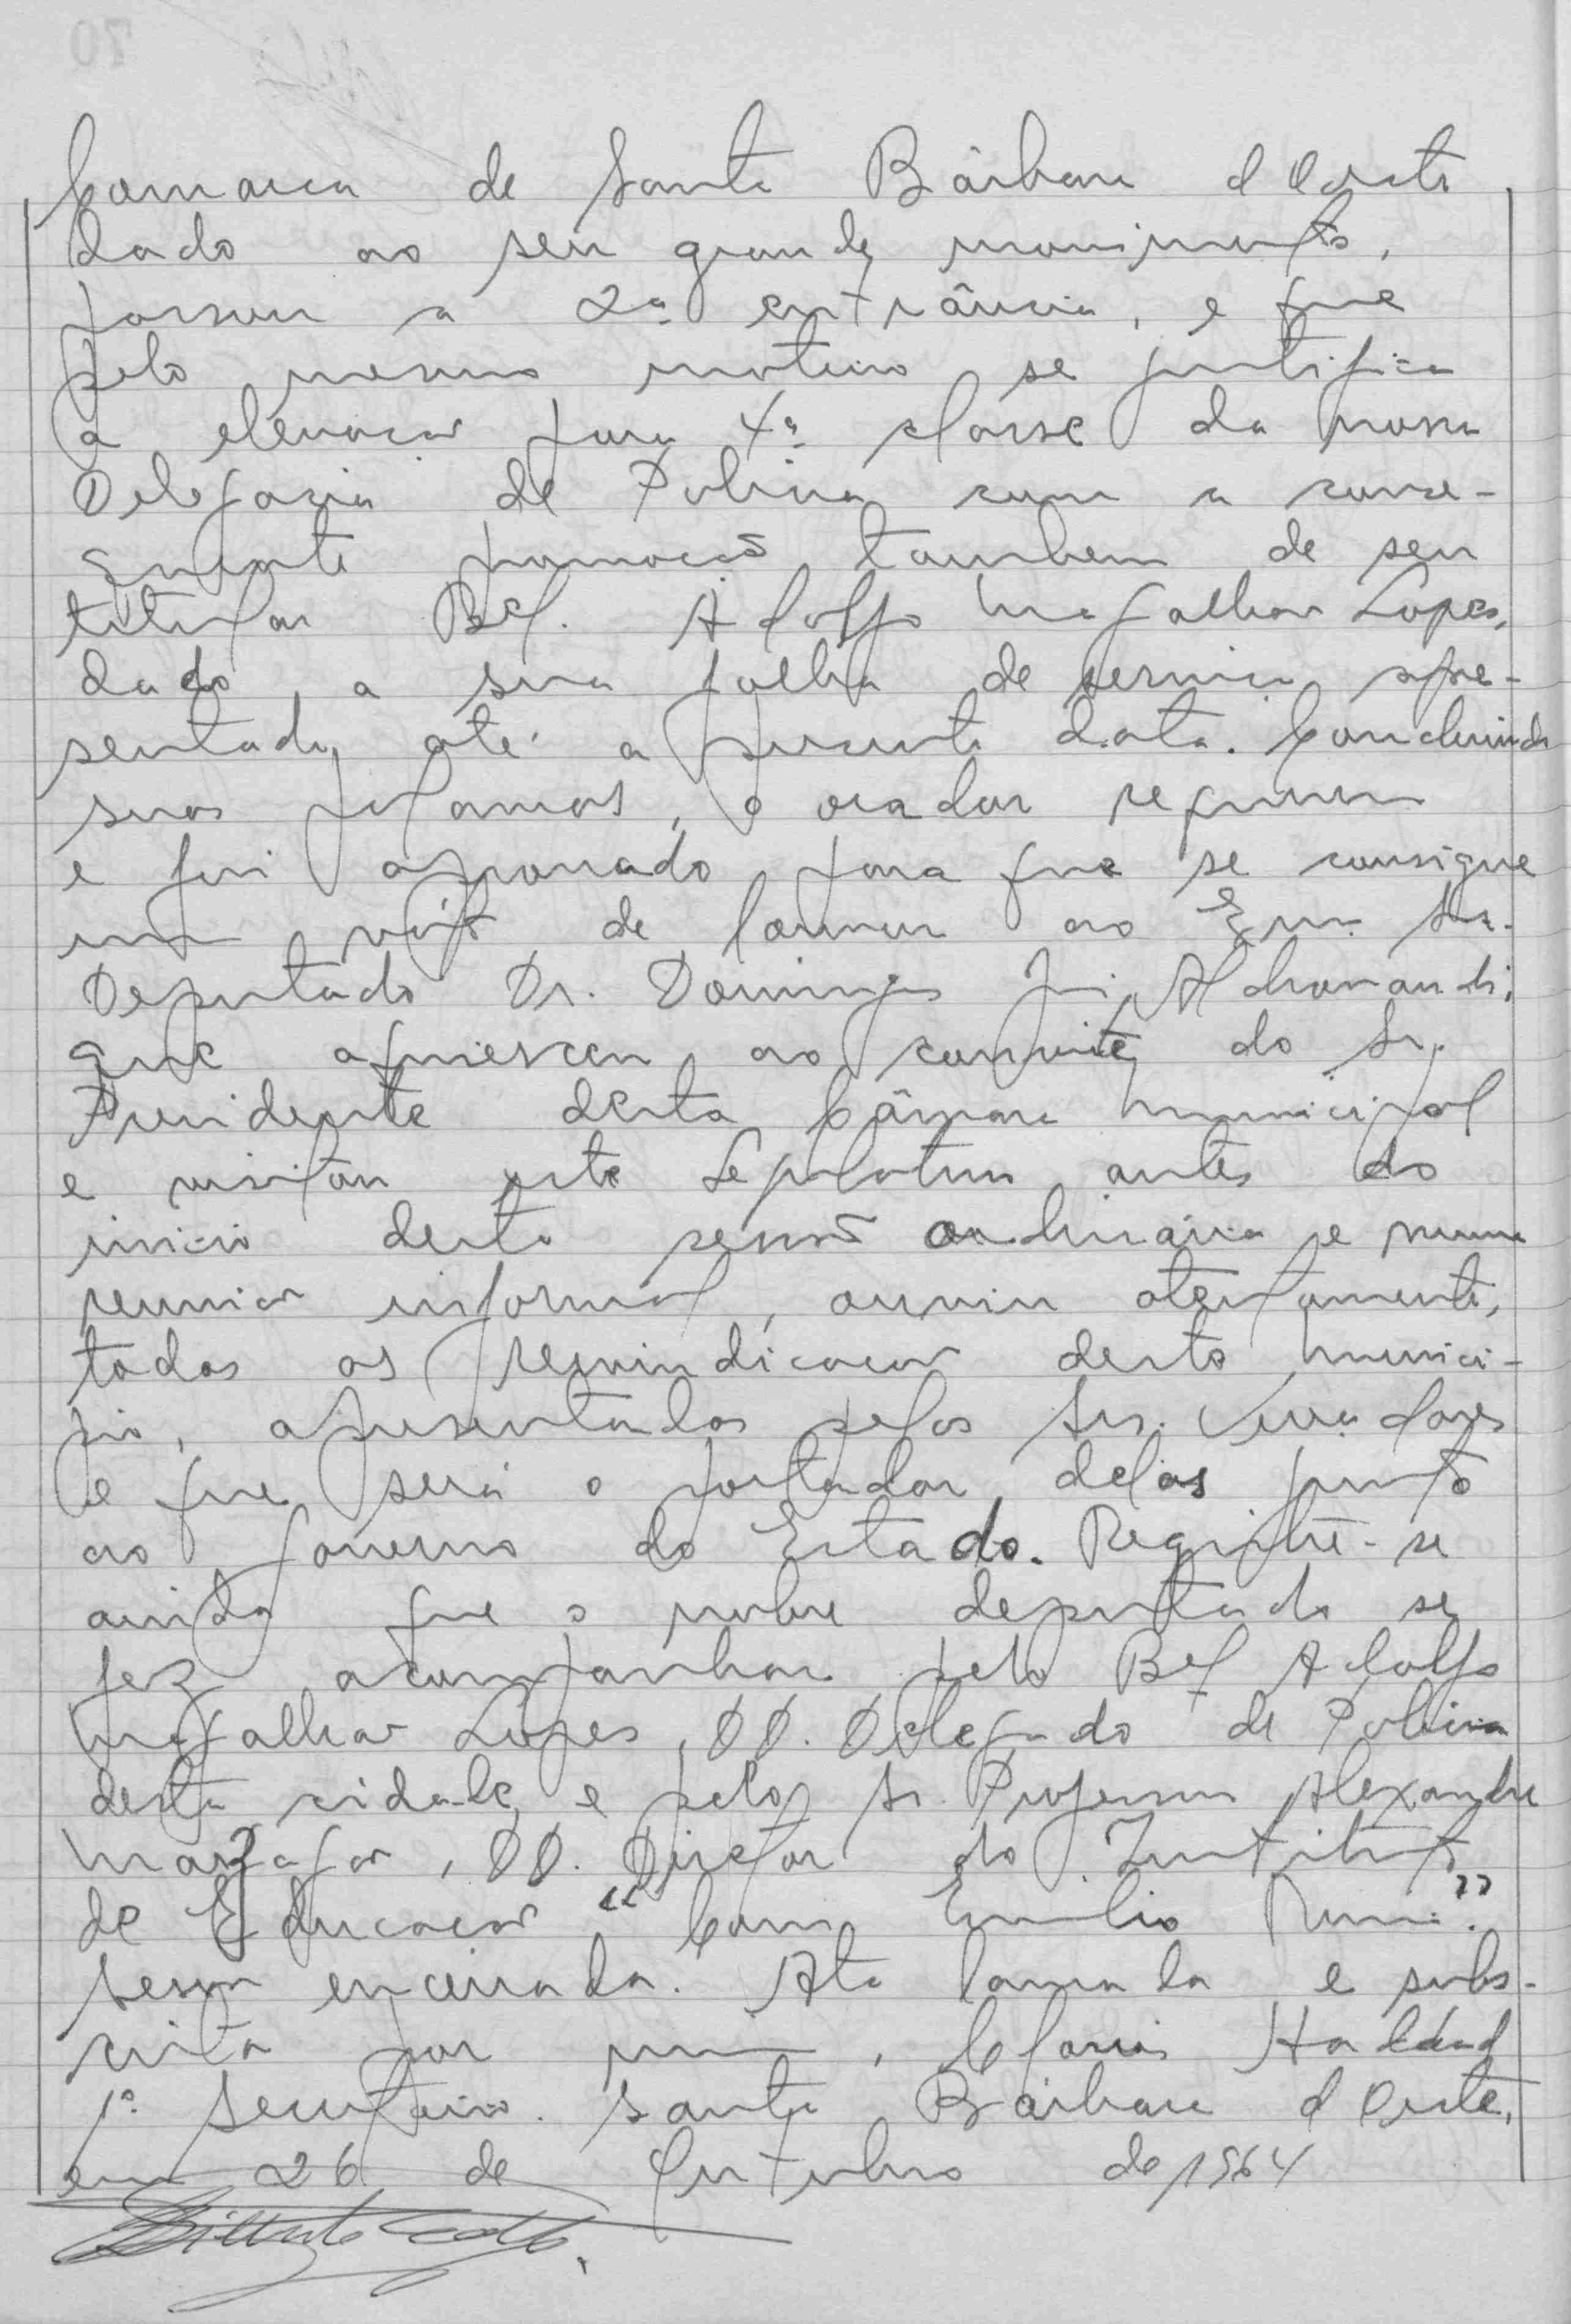 Comarca de Santa Bárbara d'Oeste
dado ao seu grande movimento,
passou a 2ª entrância, e que
pelo mesmo motivo se justifica
a elevação para 4ª classe da nossa
Delegacia de Policia com a conse-
quente promoção tambem de seu
titular Bel. Adolfo Magalhães Lopes,
dado a sua folha de serviço apre-
sentada até a presente data. Concluindo
suas palavras, o orador requereu
e foi aprovado para que se consigne
um voto de louvor ao Exmo Sr.
Deputado Dr. Domingos José Aldrovandi,
que aquiesceu ao convite do Sr.
Presidente desta Câmara Municipal
e visitou este Legislativo antes do
inicio desta sessão ordinária e numa
reunião informal, ouviu atentamente,
todas as reivindicações deste munici-
pio, apresentadas pelos Srs. Vereadores
e que será o portador delas junto
ao Governo do Estado. Registre-se
ainda que o nobre deputado se
fez acompanhar pelo Bel Adolfo
Magalhães Lopes, DD. Delegado de Policia
desta cidade, e pelo Sr. Professor Alexandre
DD. Diretor do Instituto
de Educação "Com. Emilio Romi".
Sessão encerrada. Ata lavrada e subs-
crita por mim, Clovis Haddad
1º Secretário. Santa Bárbara d'Oeste,
em 26 de Outubro de 1964